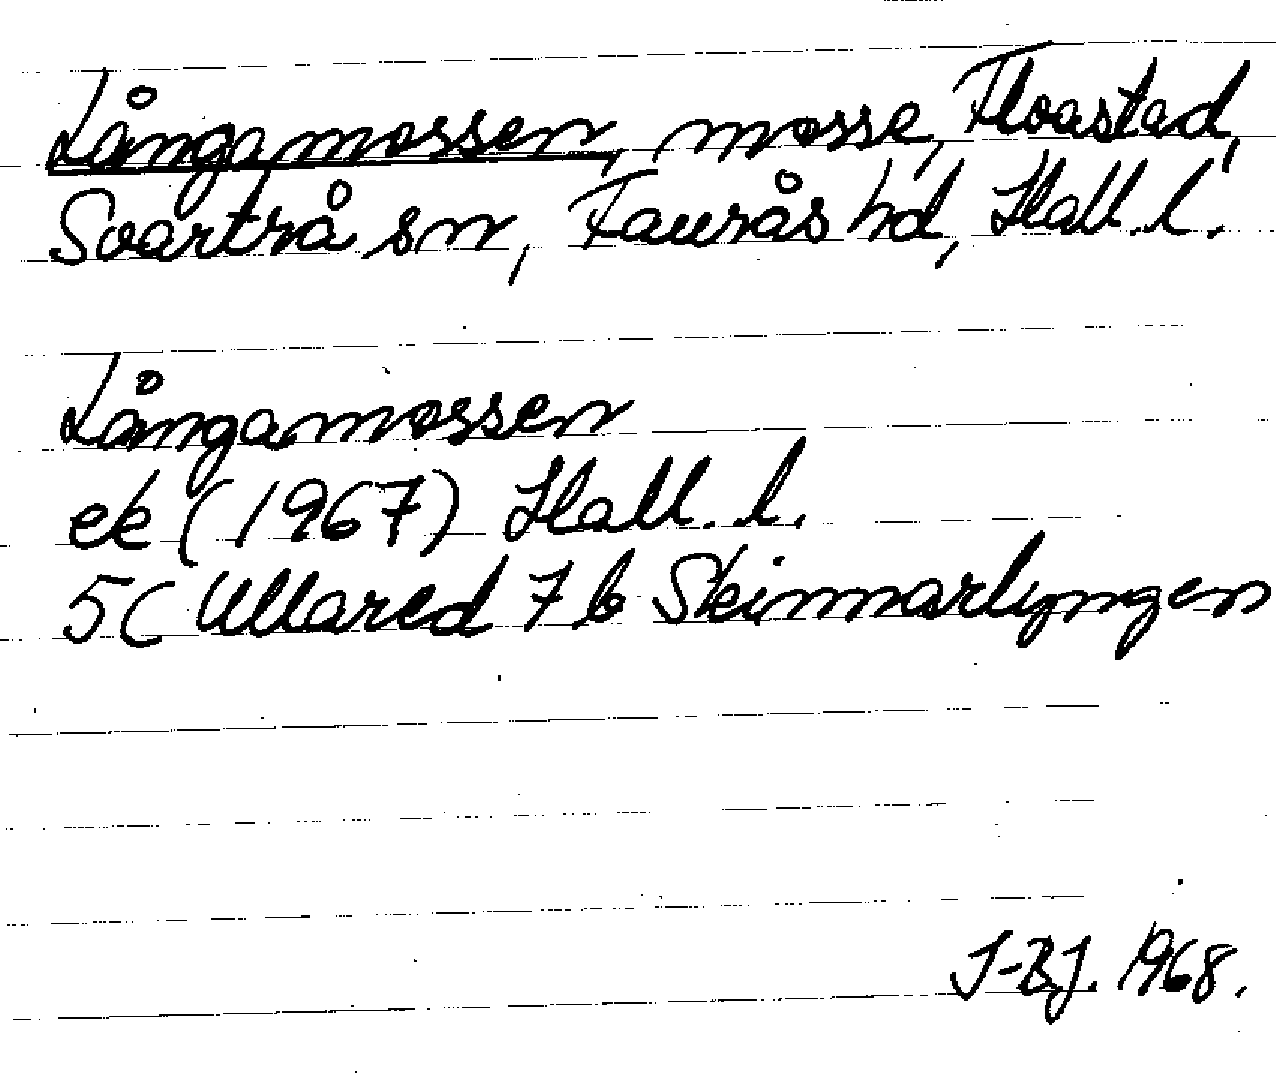 Långamossen, mosse, Floastad,
Svartrå sn, Faurås hd, Hall. l.
Långamossen
ek (1967) Hall. l.
5C Ullared 7 b Skinnarlyngen
J-BJ. 1968.